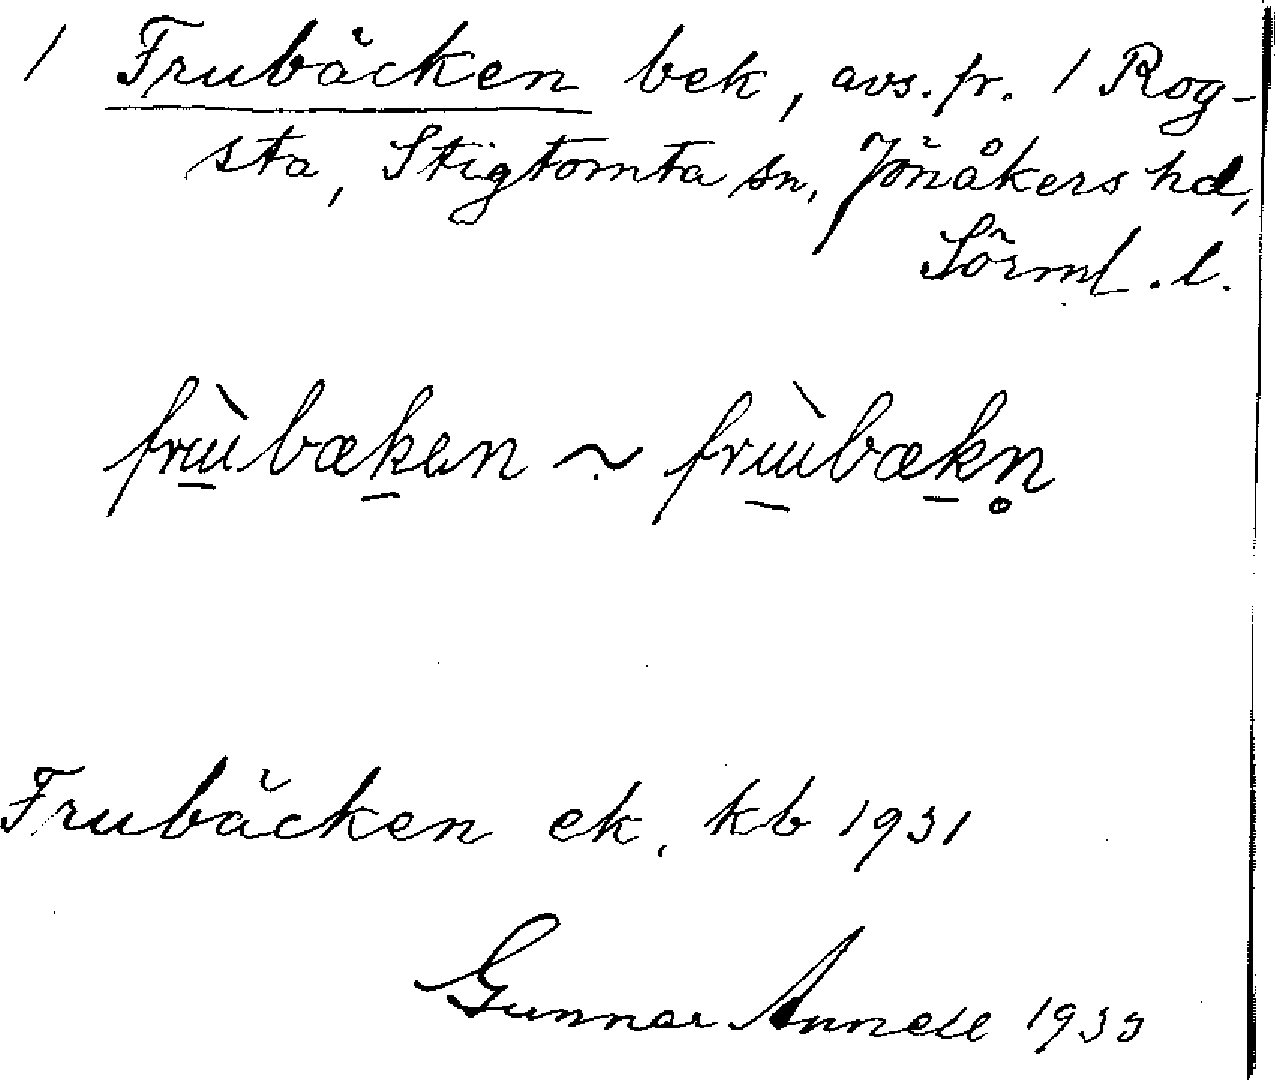 1 Frubäcken bek, avs. fr. 1 Rog-
sta, Stigtomta sn, Jönåkers hd,
Sörml. l.
frɯ̱̀bæḵen ~ frɯ̱̀bæḵn̥
Frubäcken ek. kb 1931
Gunnar Annell 1935